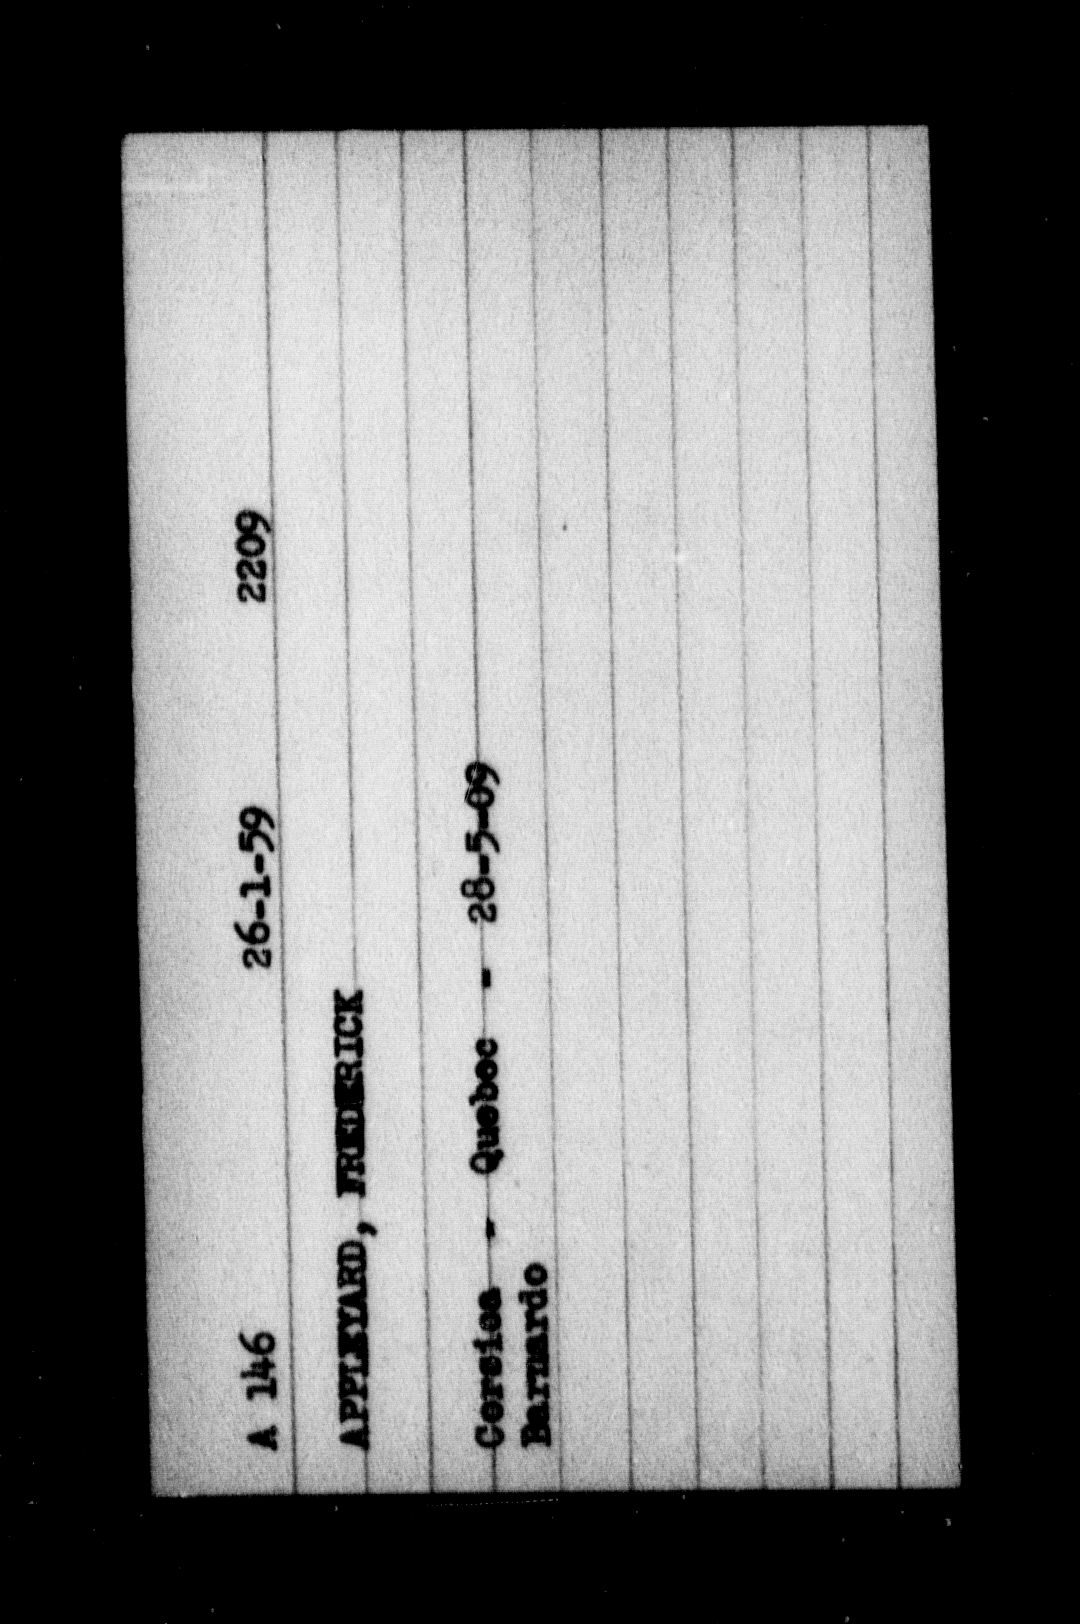 A 146 26-1-59 2209
APPLEYARD, FREDERICK
Corsica - Quebec - 28-5-09
Barnardo